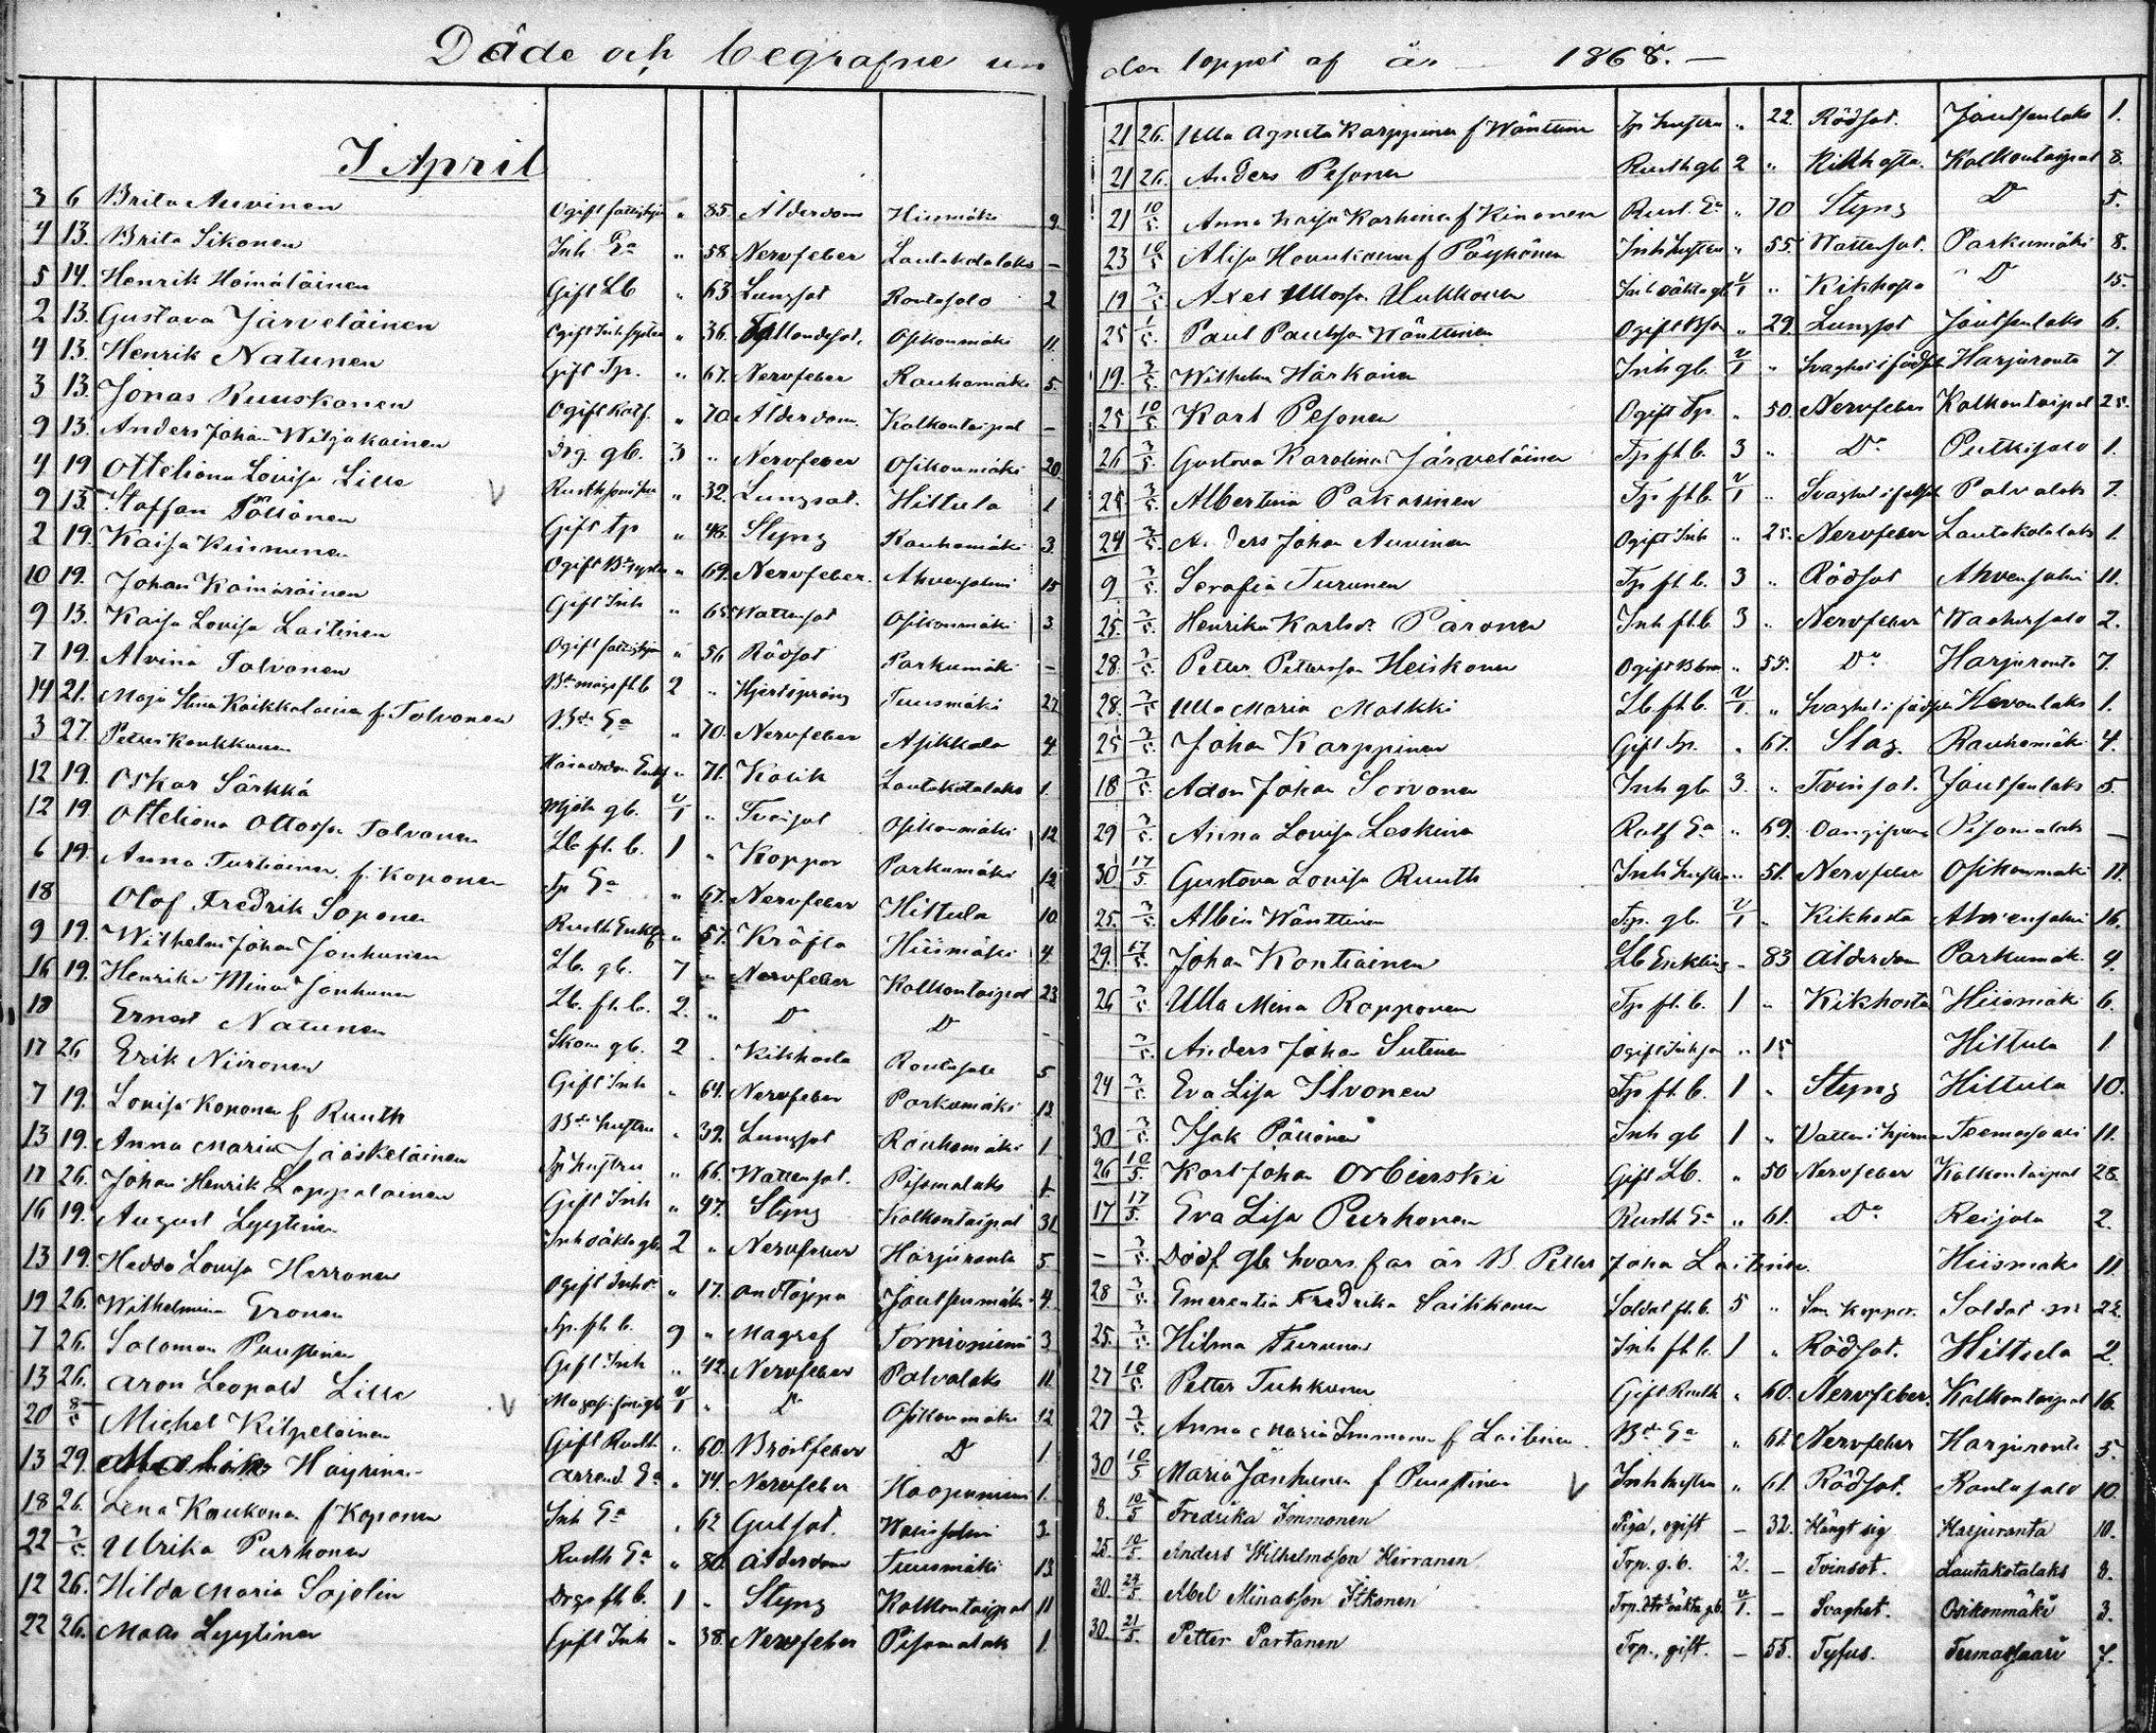 Döde och begrafne under loppet af år 1868.
I April
3 6 Brita Auvinen Ogift fattighjon " 85. Ålderdom Hiismäki 9.
4 13. Brita Sikonen Inh. Ea " 58. Nervfeber Lautakotalaks –
5 14. Henrik Hämäläinen Gift Lb " 63 Lungsot Rantasalo 2
2 13. Gustava Järveläinen Ogift Inh syster " 36. Fallandesot. Osikonmäki 11.
4 13. Henrik Natunen Gift Tp. " 67. Nervfeber Rauhamäki 5.
3 13. Jonas Ruuskanen Ogift Rotf. " 70. Ålderdom. Kolkontaipal –
9 13. Anders Johan Wiljakainen gb. 3 " Nervfeber Osikonmäki 20.
4 19 Otteliana Lovisa Lille " 32. Lungsot. Hiltula 1
9 13. Staffan Pöllänen Gift Tp " 48. Styng Rauhamäki 3.
2 19. Kaisa Kinnunen Ogift " 69. Nervfeber. Ahvensalmi 15
10 19. Johan Kämäräinen Gift Inh " 65 Wattensot Osikonmäki 3
9 13. Kaisa Lovisa Laitinen Ogift fattighjon " 56 Rödsot Parkumäki –
7 19. Alvina Tolvanen 2 " Hjertspräng Tuusmäki 22
14 21. Maja Stina Kaikkalainen f. Tolvanen Bde Ea " 70. Nervfeber Asikkala 4.
3 27. Petter Koukkunen " 71. Kolik Lautakotalaks 1.
12 19. Oskar Särkkä gb. 2/1 " Tvinsot Osikonmäki 12
12 19. Otteliana Ottosson Tolvanen Lb fl. b. 1 " Koppor Parkumäki 12
6 19. Anna Turtiainen f. Koponen Tp Ea " 67. Nervfeber Hiltula 10
18 Olof Fredrik Soponen Rusth Enkling " 57. Kräfta Hiismäki 4
9 19. Wilhelm Johan Jouhunen Lb. gb. 7 " Nervfeber Kolkontaipal 23
16 19. Henrika Mina Jouhunen Lb. fl. b. 2. " Do Do –
18 Ernest Natunen Skom gb. 2 . Kikhosta Rantasalo 5
17 26 Erik Niiranen Gift Inh " 64. Nervfeber Parkumäki 13
7 19. Lovisa Koponen f Ruuth Bde hustru " 39. Lungsot Rauhamäki 1
13 19. Anna Maria Jääskeläinen Tp hustru " 66. Wattensot. Pisamalaks 1.
17 26. Johan Henrik Lappalainen Gift Inh " 47. Styng Kolkontaipal 31
16 19. August Lyytinen Inh oäkta gb. 2 " Nervfeber Harjuranta 5
13 19. Hedda Lovisa Herranen Ogift Inh " 17. andtäppa Joutsenmäki 4.
19 26. Wilhelmina Gronen Tp. fl. b. 9 " Magref Torniomiemi 3
7 26. Salomon Puustinen Gift Inh " 42. Nervfeber Palvalaks 11.
13 26. Aron Leopold Lille gb 2/1 " Do Osikonmäki 12
20 8/5 Michel Kilpeläinen Gift Rusth " 60. Bröstfeber Do 1
13 29. Häyrinen Arrend. Ea " 74. Nervfeber Haapaniemi 1.
18 26. Lena Koukonen f Koponen Inh Ea " 62 Gulsot. 3.
22 3/5 Ulrika Purhonen Rusth Ea " 80. Ålderdom Tuusmäki 13
12 26. Hilda Maria Sajolin fl b. 1 " Styng Kolkontaipal 11
22 26. Mads Lyytinen Gift Inh " 38. Nervfeber Pisamalaks 1.
21 26. Ulla Agneta Karppinen f Wänttinen Tp hustru " 22. Rödsot. Joutsenlaks 1.
21 26. Anders Pesonen Rusth gb 2 " Kikhosta. Kolkontaipal 8.
21 10/5 Anna Kaisa Karhinen f Kinonen Rust. Ea " 70 Styng Do 5.
23 10/5 Alisa Haukanen f Pöyhönen Inh hustru " 55. Wattensot. Parkumäki 8.
19 3/5 Axel Ullosson Hukkonen Inh oäkta gb 2/1 " Kikhosta Do 15.
25 1/5 Paul Paulsson Wänttinen Ogift Bson " 29. Lungsot Joutsenlaks 6.
19. 3/5 Wilhelm Härkönen Inh gb. 2/1 " Svaghet i födsel Harjuranta 7
25 10/5 Karl Pesonen Ogift Tp. " 50. Nervfeber Kolkontaipal 25.
26 3/5 Gustava Karolina Järveläinen Tp. fl b. 3 " Do Putkisalo 1.
25 3/5 Albertina Pakarinen Tp fl b. 2/1 " Svaghet i födsel Palvalaks 7.
24 3/5 Anders Johan Auvinen Ogift Inh " 25. Nervfeber Lautakotalaks 1.
9 3/5 Serafia Turunen Tp fl b. 3 " Rödsot Ahvensalmi 11.
25. 3/5 Henrika Karlsdr Päronen Inh fl b 3 " Nervfeber 2.
28. 3/5 Petter Pettersson Heiskanen Ogift " 55. Do Harjuranta 7.
28. 3/5 Ulla Maria Malkki Lb fl b. 2/1. " Svaghet i födseln Hevonlaks 1.
25 3/5 Johan Karppinen Gift Tp. " 67. Slag. Rauhamäki 4.
18 3/5 Adam Johan Sorvonen Inh gb 3. " Tvinsot. Joutsenlaks 5.
29 3/5 Anna Lovisa Leskinen Rotf Ea " 69. Oangifven Pisamalaks –
30. 17/5 Gustava Lovisa Ruuth Inh hustru " 51. Nervfeber Osikonmäki 11.
25. 3/5 Albin Wänttinen Tp. gb. 2/1 " Kikhosta Ahvensalmi 16.
29. 17/5 Johan Kontiainen Lb Enkling – 83 Ålderdom Parkumäki 4.
26 3/5 Ulla Mina Rapponen Tp fl. b. 1 " Kikhosta Hiismäki 6.
3/5 Anders Johan Sutinen Ogift Inh son " 15 Hiltula 1
24 3/5 Eva Lisa Ilvonen Tp fl b. 1 " Styng Hiltula 10.
30 3/5 Isak Pöllänen Inh gb 1 " Vatten i hjernan Teemassaari 11.
26 10/5 Karl Johan Orbinski Gift Lb. " 50 Nervfeber Kolkontaipal 28.
17 17/5 Eva Lisa Purhonen Rusth Ea " 61. Do Reijola 2.
– 3/5 Dödf gb hvars far är B. Petter Johan Laitinen. Hiismäki 11.
28 3/5 Emerentia Fredrika Saikkonen Soldat fl b. 5 " Sm koppor. Soldat 22.
25. 3/5 Hilma Turunen Inh fl b. 1 " Rödsot. Hiltula 2.
27 10/5 Petter Tuhkunen Gift Rusth " 60. Nervfeber. Kolkontaipal 16.
27 3/5 Anna Maria Immonen f Laitinen. Bde Ea " 61. Nervfeber Harjuranta 5.
30 10/5 Maria Jänhunen f Puustinen Inh hustru " 61. Rödsot. Rantasalo 10.
8. 10/5 Fredrika Immonen Piga, ogift – 32. Hängt sig Harjuranta 10.
25. 10/5 Anders Wilhelmsson Hirvanen Trp. g. b. 2. – Tvinsot. Lautakotalaks 8.
30. 24/5 Abel Minasson Itkonen Trp. oäkta gb. 2/1. – Svaghet. Osikonmäki 3.
30. 21/5 Petter Partanen Trp., gift. – 55. Tyfus. Teemassaari 7.